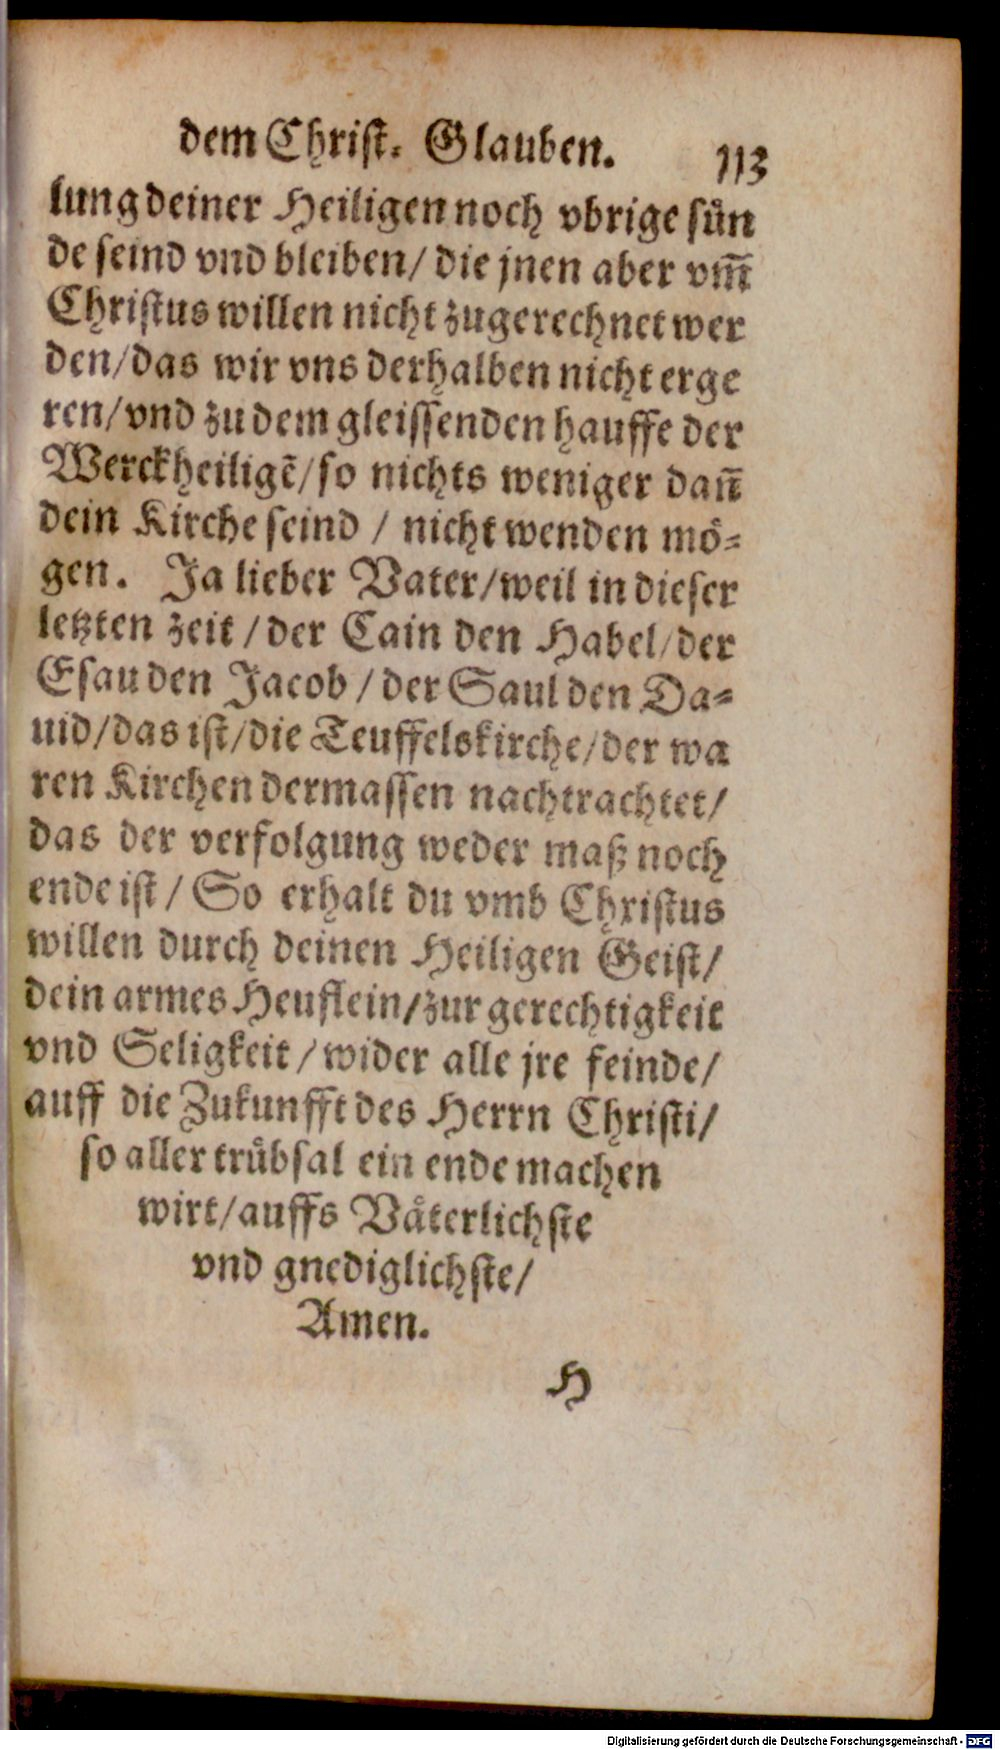 dem Christ. Glauben. 113
lung deiner Heiligen noch vbrige sůn
de seind vnd bleiben/ die jnen aber vm̄
Christus willen nicht zugerechnet wer
den/das wir vns derhalben nicht erge
ren/vnd zu dem gleissenden hauffe der
Werckheiligē/so nichts weniger dañ
dein Kirche seind / nicht wenden mö-
gen. Ja lieber Vater/weil in dieser
letzten zeit / der Cain den Habel/der
Esau den Jacob / der Saul den Da-
uid/das ist/die Teuffelskirche/der wa
ren Kirchen dermassen nachtrachtet/
das der verfolgung weder maß noch
ende ist / So erhalt du vmb Christus
willen durch deinen Heiligen Geist/
dein armes Heuflein/zur gerechtigkeit
vnd Seligkeit / wider alle jre feinde/
auff die Zukunfft des Herrn Christi/
so aller trůbsal ein ende machen
wirt/auffs Våterlichste
vnd gnediglichste/
Amen.
H
Digitalisierung gefördert durch die Deutsche Forschungsgemeinschaft - DFG